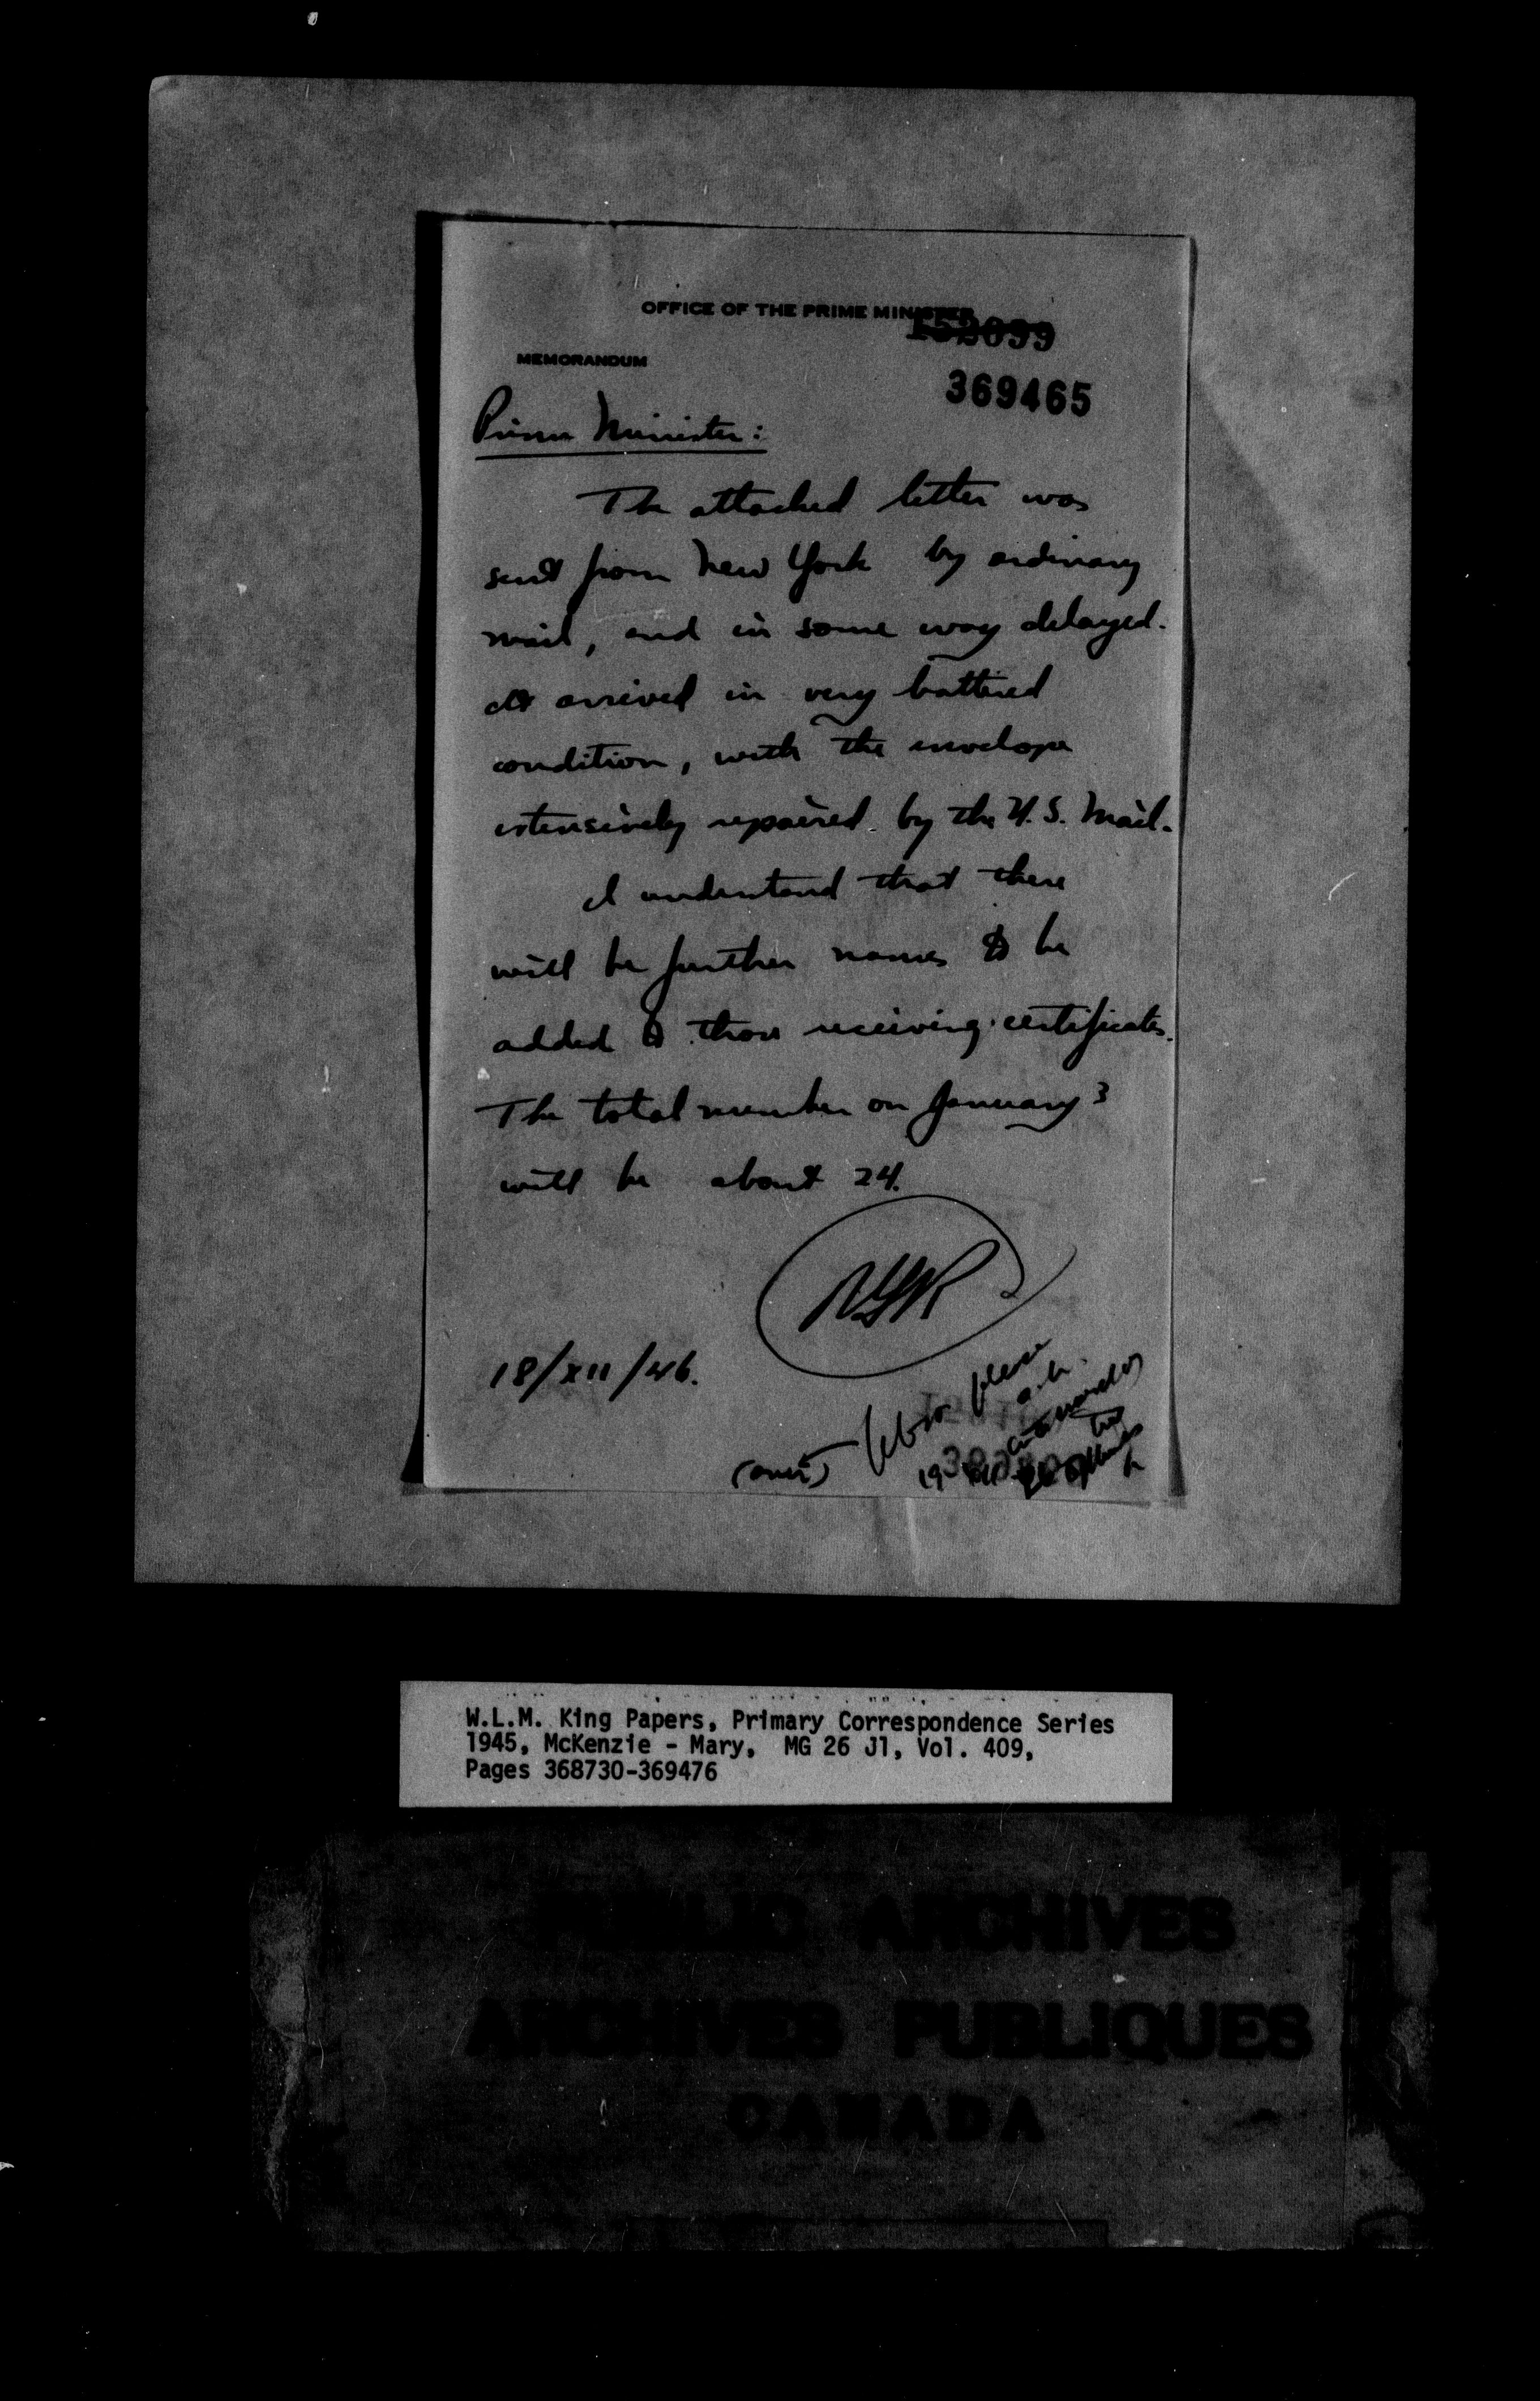 OFFICE OF THE PRIME MINISTER
152099
MEMORANDUM
369465
Prime Minister:
The attached letter was
sent from New York by ordinary
mail, and in some way delayed.
It arrived in very battered
condition, with the envelope
extensively repaired by the U.S. Mail.
I understand that there
will be further names to be
added to those receiving certificates.
The total number on January 3
will be about 24.
18/XII/46.
please
(over)
W.L.M. King Papers, Primary Correspondence Series
1945, McKenzie - Mary, MG 26 J1, Vol. 409,
Pages 368730-369476
PUBLIC ARCHIVES
ARCHIVES PUBLIQUES
CANADA